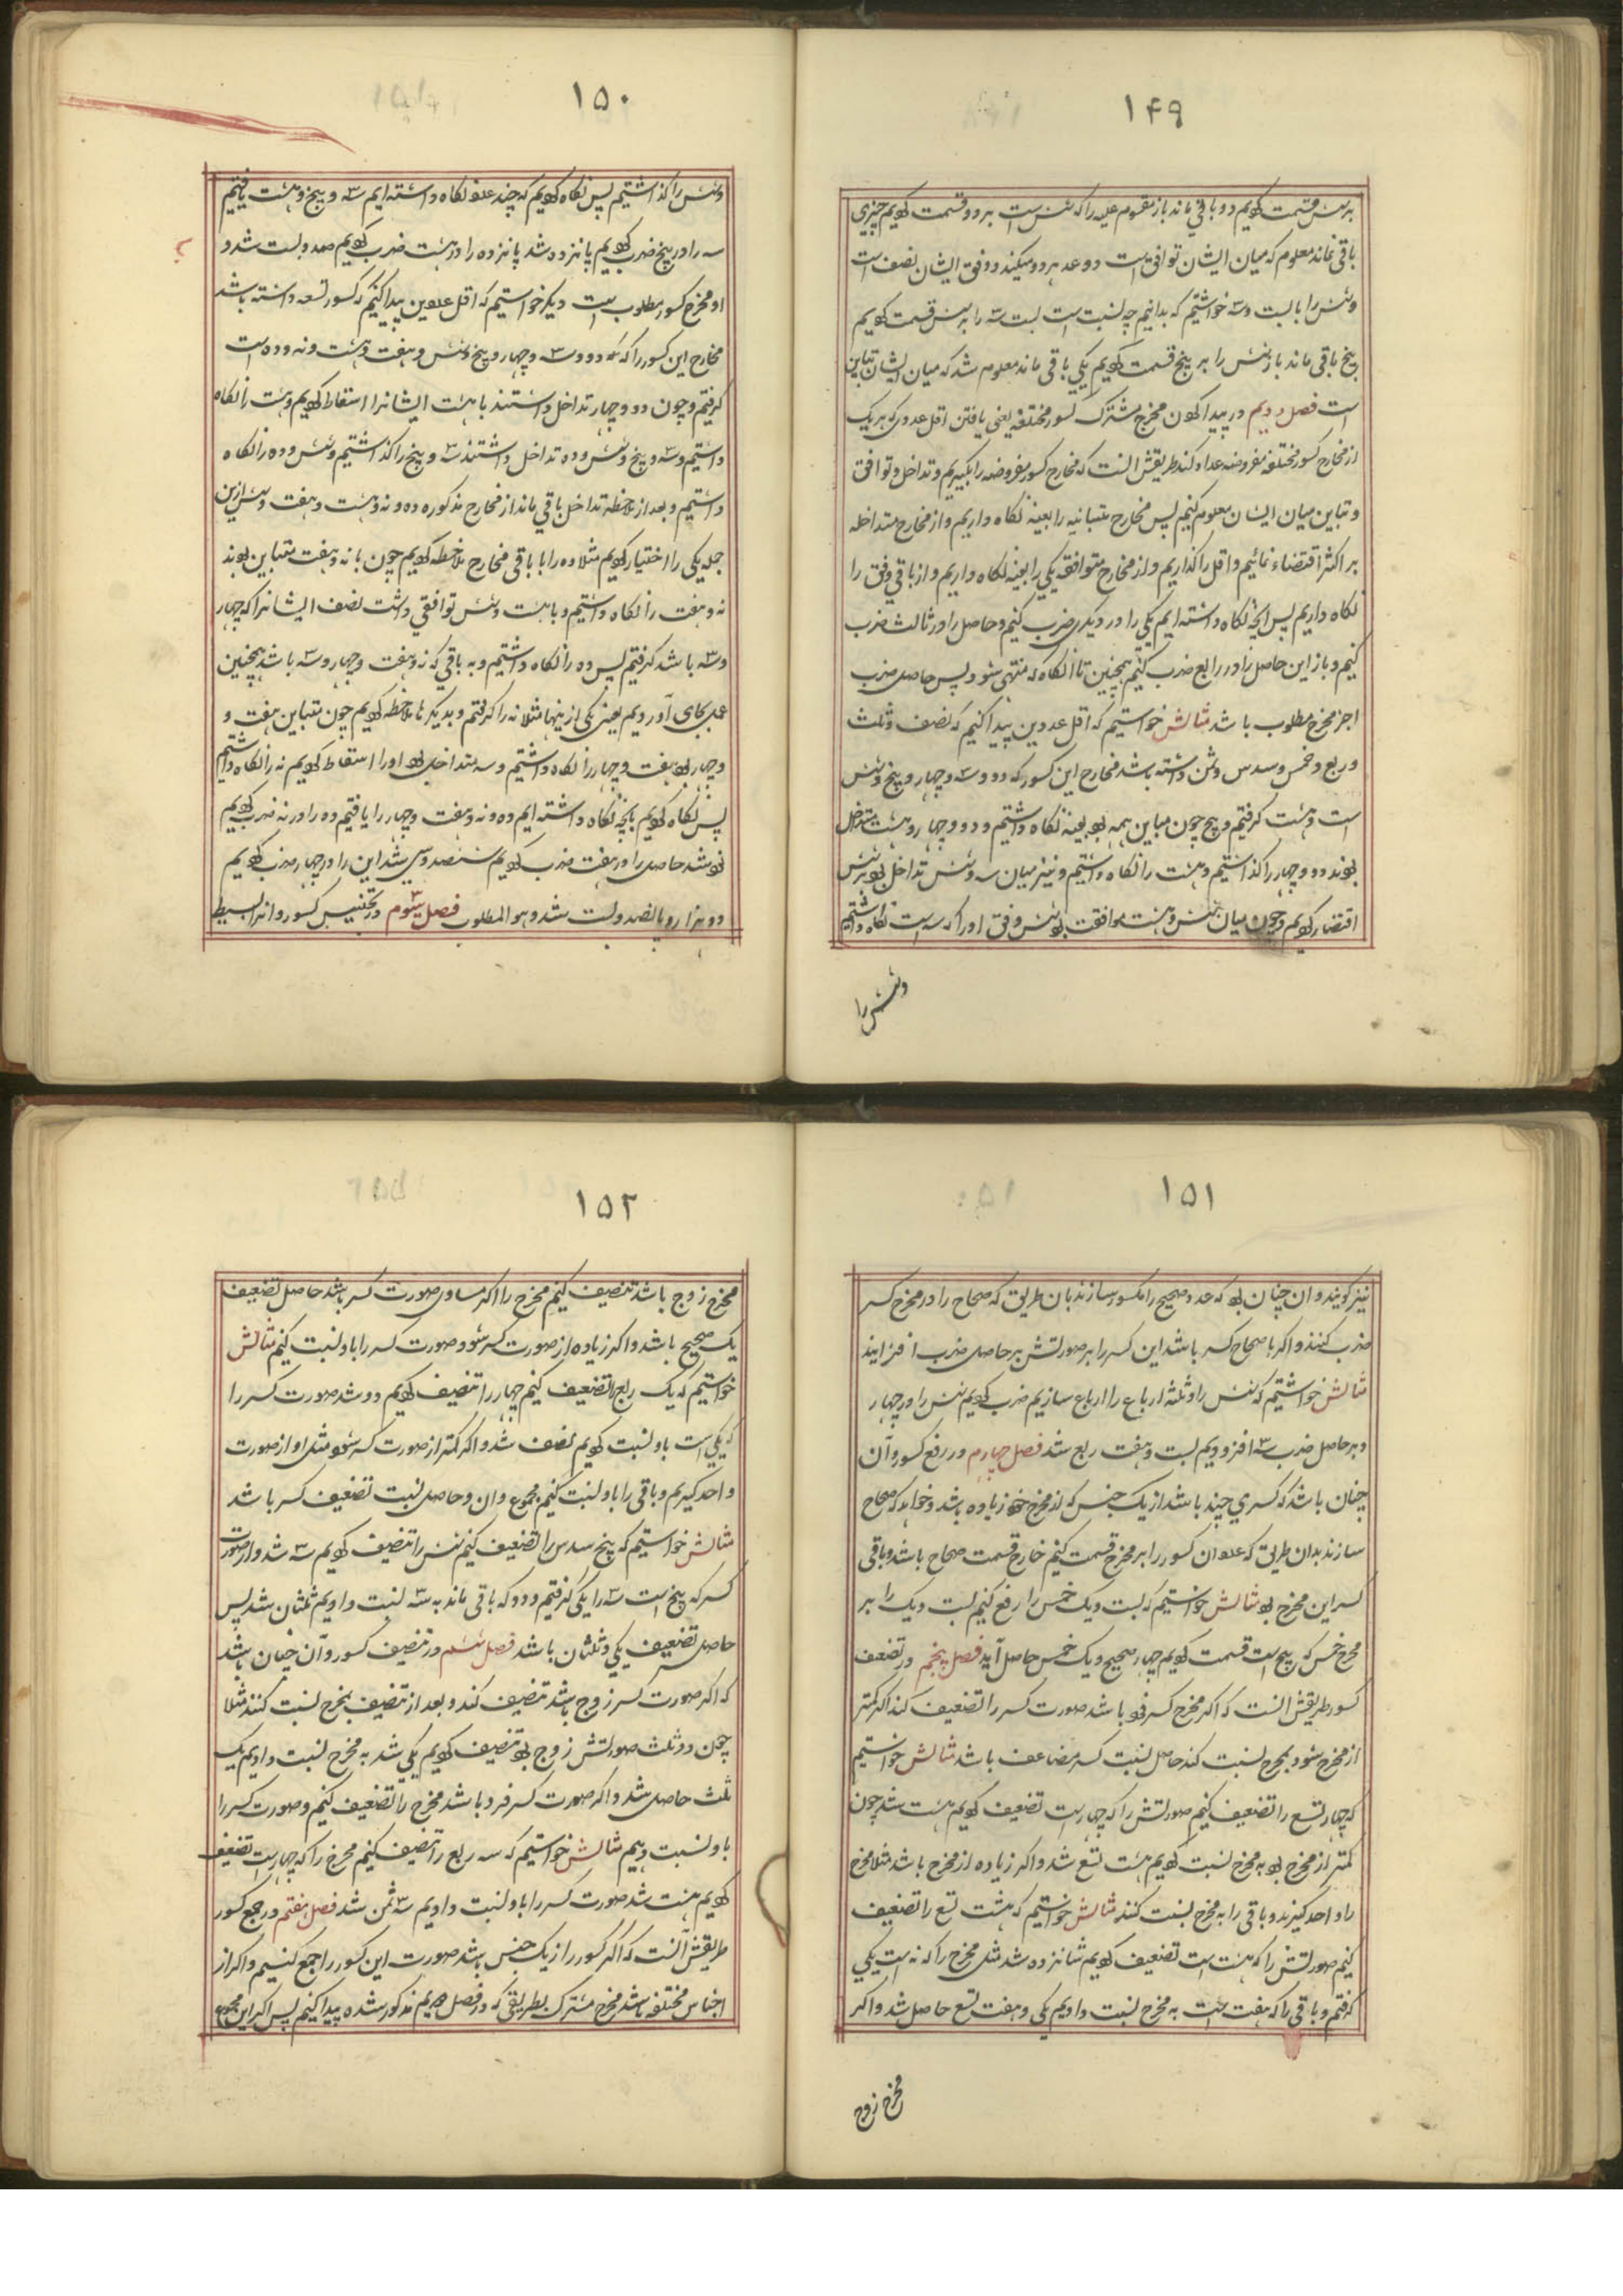 ۱۴۹
بر شش قسمت کردیم دو باقی ماند باز مقسوم علیه را که شش است بر دو قسمت کردیم چیزی
باقی نماند معلوم که میان ایشان توافق است دو عد هر دو میکند و وفق ایشان نصف است
و شش را با بست و سه خواستیم که بدانیم چه نسبت است بست و سه را بر شش قسمت کردیم
پنج باقی ماند باز شش را بر پنج قسمت کردیم یکی باقی ماند معلوم شد که میان ایشان تباین
است فصل دویم در پیدا کردن مخرج مشترک کسور مختلفه یعنی یافتن اقل عددی که هر یک
از مخارج کسور مختلفه مفروضه عد او کند طریقش آنست که مخارج کسور مفروضه را بگیریم و تداخل و توافق
و تباین میان ایشان معلوم کنیم پس مخارج متباینه را بعینه نگاه داریم و از مخارج متداخله
بر اکثر اقتضاء نمائیم و اقل را گذاریم و از مخارج متوافقه یکی را بعینه نگاه داریم و از باقی وفق را
نگاه داریم پس انچه نگاه داشته ایم یکی را در دیگری ضرب کنیم و حاصل را در ثالث ضرب
کنیم و باز این حاصل را در رابع ضرب کنیم همچنین تا آنگاه که منتهی شود پس حاصل ضرب
اجزء مخرج مطلوب باشد مثالش خواستیم که اقل عددین پیدا کنیم که نصف و ثلث
و ربع و خمس و سدس و ثمن داشته باشد مخارج این کسور که دو و سه و چهار و پنج و شش
است و هشت گرفتیم و پنج چون مباین همه بود بعینه نگاه داشتیم و دو و چهار و هشت متداخل
بودند دو و چهار را گذاشتیم و هشت را نگاه داشتیم و نیز میان سه و شش تداخل بود بر شش
اقتضار کردیم و چون میان شش و هشت موافقت بود شش وفق او را که سه است نگاه داشتیم
و شش را
۱۵۰
و شش را گذاشتیم پس نگاه کردیم که چند عدد نگاه داشته ایم سه و پنج و هشت یافتیم
سه را در پنج ضرب کردیم پانزده شد پانزده را در هشت ضرب کردیم صد و بست شد و
او مخرج کسور مطلوب است دیگر خواستیم که اقل عددین پیدا کنیم که کسور تسعه داشته باشد
مخارج این کسور را که دو و سه و چهار و پنج و شش و هفت و هشت و نه و ده است
گرفتیم و چون دو و چهار تداخل داشتند با هشت ایشانرا اسقاط کردیم و هشت را نگاه
داشتیم و سه و پنج و شش و ده تداخل داشتند سه و پنج را گذاشتیم و شش و ده را نگاه
داشتیم و بعد از ملاحظه تداخل باقی ماند از مخارج مذکوره ده و نه و هشت و هفت و شش ازین
جمله یکی را اختیار کردیم مثلا ده را با باقی مخارج ملاحظه کردیم چون با نه و هفت متباین بودند
نه و هفت را نگاه داشتیم و با هشت و شش توافقی داشت نصف ایشانرا که چهار
و سه باشد گرفتیم پس ده را نگاه داشتیم و به باقی که نه و هفت و چهار و سه باشد همچنین
عمل بجای آوردیم یعنی یکی از ینها مثلا نه را گرفتم و بدیگرها ملاحظه کردیم چون متباین هفت و
و چهار بود هفت و چهار را نگاه داشتیم و سه متداخل بود او را اسقاط کردیم نه را نگاه داشتیم
پس نگاه کردیم بانچه نگاه داشته ایم ده و نه و هفت و چهار را یافتیم ده را در نه ضرب کردیم
نود شد حاصل را در هفت ضرب کردیم ششصد و سی شد این را در چهار ضرب کردیم
دو هزار و پانصد و بست شد و هو المطلوب فصل سیوم در تجنیس کسور و انرا بسیط
۱۵۱
نیز گویند و ان چنان بود که عدد صحیح را مکسور سازند بان طریق که صحاح را در مخرج کسر
ضرب کنند و اگر با صحاح کسر باشد این کسر را بر صورتش بر حاصل ضرب افزایند
مثالش خواستیم که شش را و ثلثه ارباع را ارباع سازیم ضرب کردیم شش را در چهار
و بر حاصل ضرب سه افزودیم بست و هفت ربع شد فصل چهارم در رفع کسور و آن
چنان باشد که کسری چند باشد از یک جنس که از مخرج خود زیاده باشد و خواهد که صحاح
سازند بدان طریق که عدد ان کسور را بر مخرج قسمت کنیم خارج قسمت صحاح باشد و باقی
کسر این مخرج بود مثالش خواستیم که بست و یک خمس را رفع کنیم بست و یک را بر
مخرج خمس که پنج است قسمت کردیم چهار صحیح و یک خمس حاصل آید فصل پنجم در تضعیف
کسور طریقش آنست که اگر مخرج کسر فرد باشد صورت کسر را تضعیف کند اگر کمتر
از مخرج شود بمخرج نسبت کند حاصل نسبت کسر مضاعف باشد مثالش خواستیم
که چهار تسع را تضعیف کنیم صورتش را که چهار است تضعیف کردیم هشت شد چون
کمتر از مخرج بود به مخرج نسبت کردیم هشت تسع شد و اگر زیاده از مخرج باشد مثلا مخرج
را واحد گیرند و باقی را به مخرج نسبت کنند مثالش خواستیم که هشت تسع را تضعیف
کنیم صورتش را که هشت است تضعیف کردیم شانزده شد مثل مخرج را که نه است یکی
گرفتم و باقی را که هفت است به مخرج نسبت دادیم یکی و هفت تسع حاصل شد و اگر
مخرج زوج
۱۵۲
مخرج زوج باشد تنصیف کنیم مخرج را اگر مساوی صورت کسر باشد حاصل تضعیف
یک صحیح باشد و اگر زیاده از صورت کسر شود صورت کسر را باو نسبت کنیم مثالش
خواستیم که یک ربع را تضعیف کنیم چهار را تنصیف کردیم دو شد صورت کسر را
که یکی است باو نسبت کردیم نصف شد و اگر کمتر از صورت کسر شود مثل او از صورت
واحد گیریم و باقی را باو نسبت کنیم مجموع و ان و حاصل نسبت تضعیف کسر باشد
مثالش خواستیم که پنج سدس را تضعیف کنیم شش را تنصیف کردیم سه شد و از صورت
کسر که پنج است سه را یکی گرفتیم و دو که باقی ماند به سه نسبت دادیم ثلثان شد پس
حاصل تضعیف یکی و ثلثان باشد فصل ششم در تنصیف کسور و آن چنان باشد
که اگر صورت کسر زوج باشد تنصیف کند و بعد از تنصیف بمخرج نسبت کنند مثلا
چون دو ثلث صورتش زوج بود تنصیف کردیم یکی شد به مخرج نسبت دادیم یک
ثلث حاصل شد و اگر صورت کسر فرد باشد مخرج را تضعیف کنیم و صورت کسر را
باو نسبت دهیم مثالش خواستیم که سه ربع را تنصیف کنیم مخرج را که چهار است تضعیف
کردیم هشت شد صورت کسر را باو نسبت دادیم سه ثمن شد فصل هفتم در جمع کسور
طریقش آنست که اگر کسور را از یک جنس باشد صورت این کسور را جمع کنیم و اگر از
اجناس مختلفه باشد مخرج مشترک بطریقی که در فصل دویم مذکور شده پیدا کنیم پس اگر این مجموع